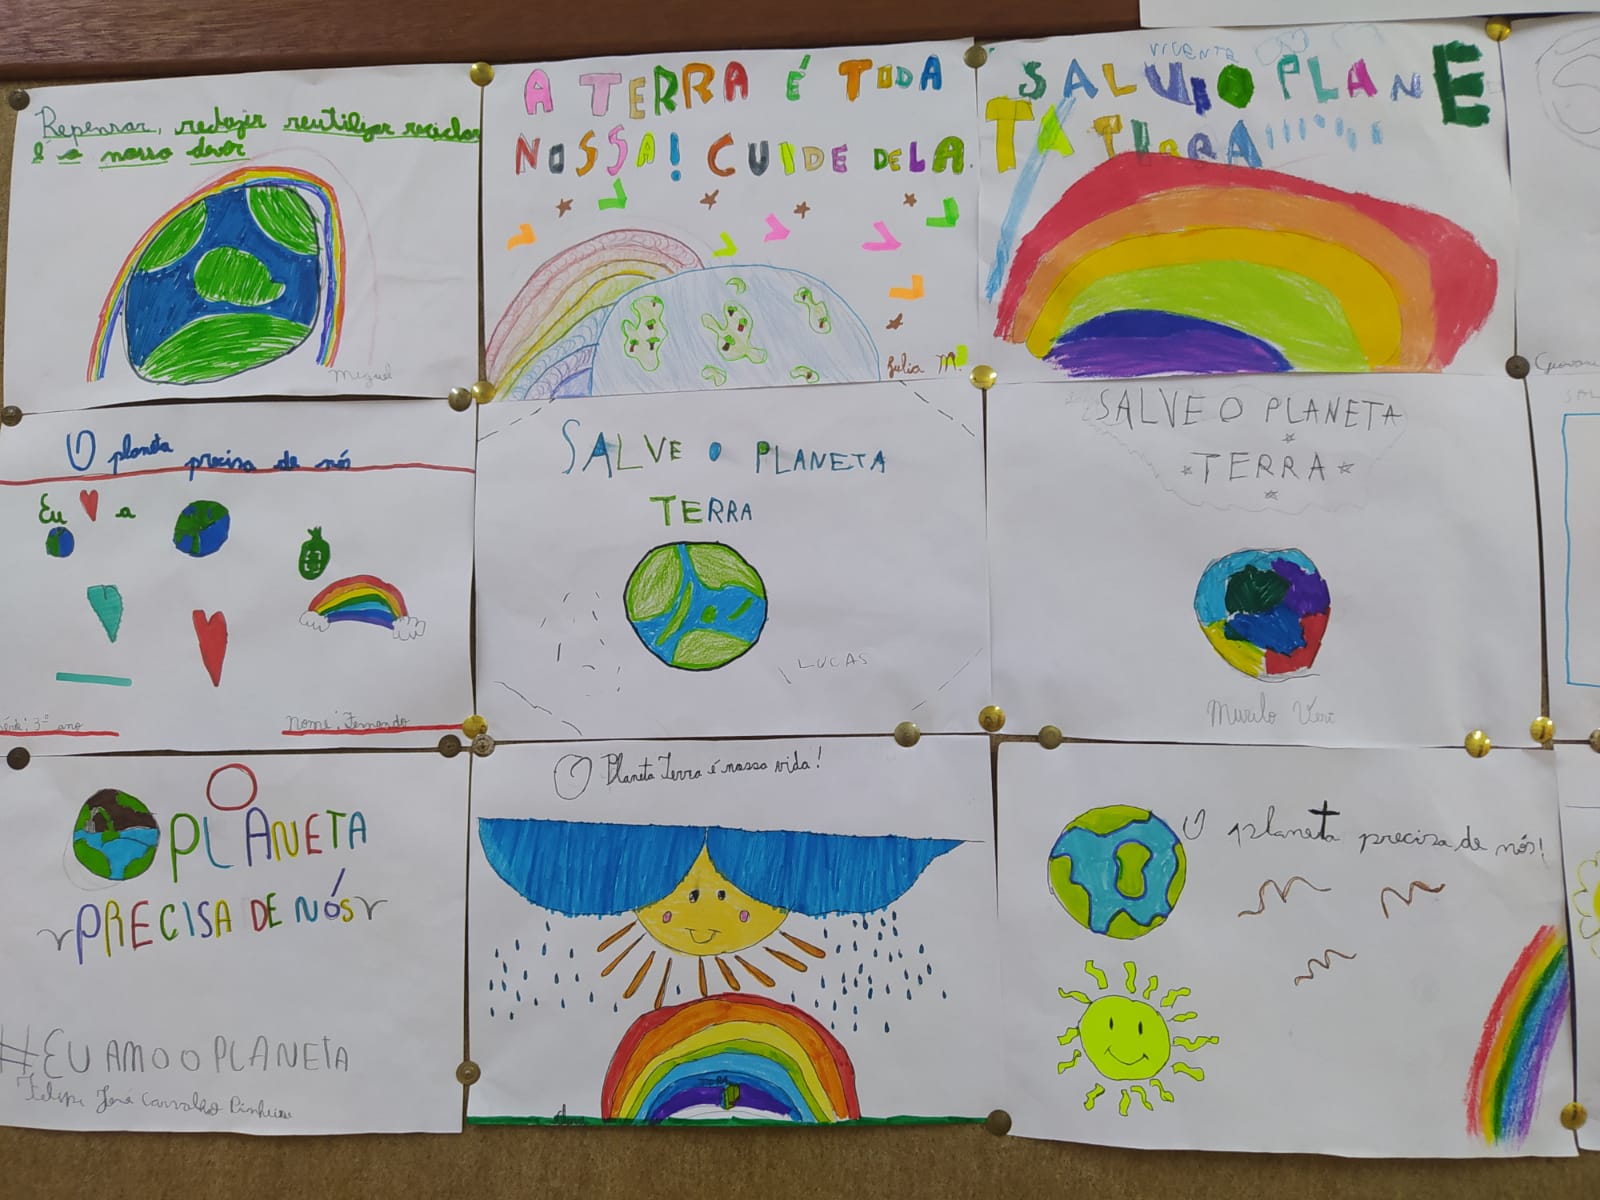 Repensar, reduzir reutilizar reciclar
é o nosso dever
Miguel
A TERRA É TODA
NOSSA! CUIDE DELA.
Julia M.
VICENTE
SALVIO PLANE
TA TIRRA
O planeta precisa de nós
Eu a
3º ano
Nome: Fernando
SALVE O PLANETA
TERRA
LUCAS
SALVE O PLANETA
TERRA
Murilo
O
PLANETA
PRECISA DE NÓS
#EU AMO O PLANETA
Felipe José Carvalho Pinheiro
O Planeta Terra é nossa vida!
O planeta precisa de nós!